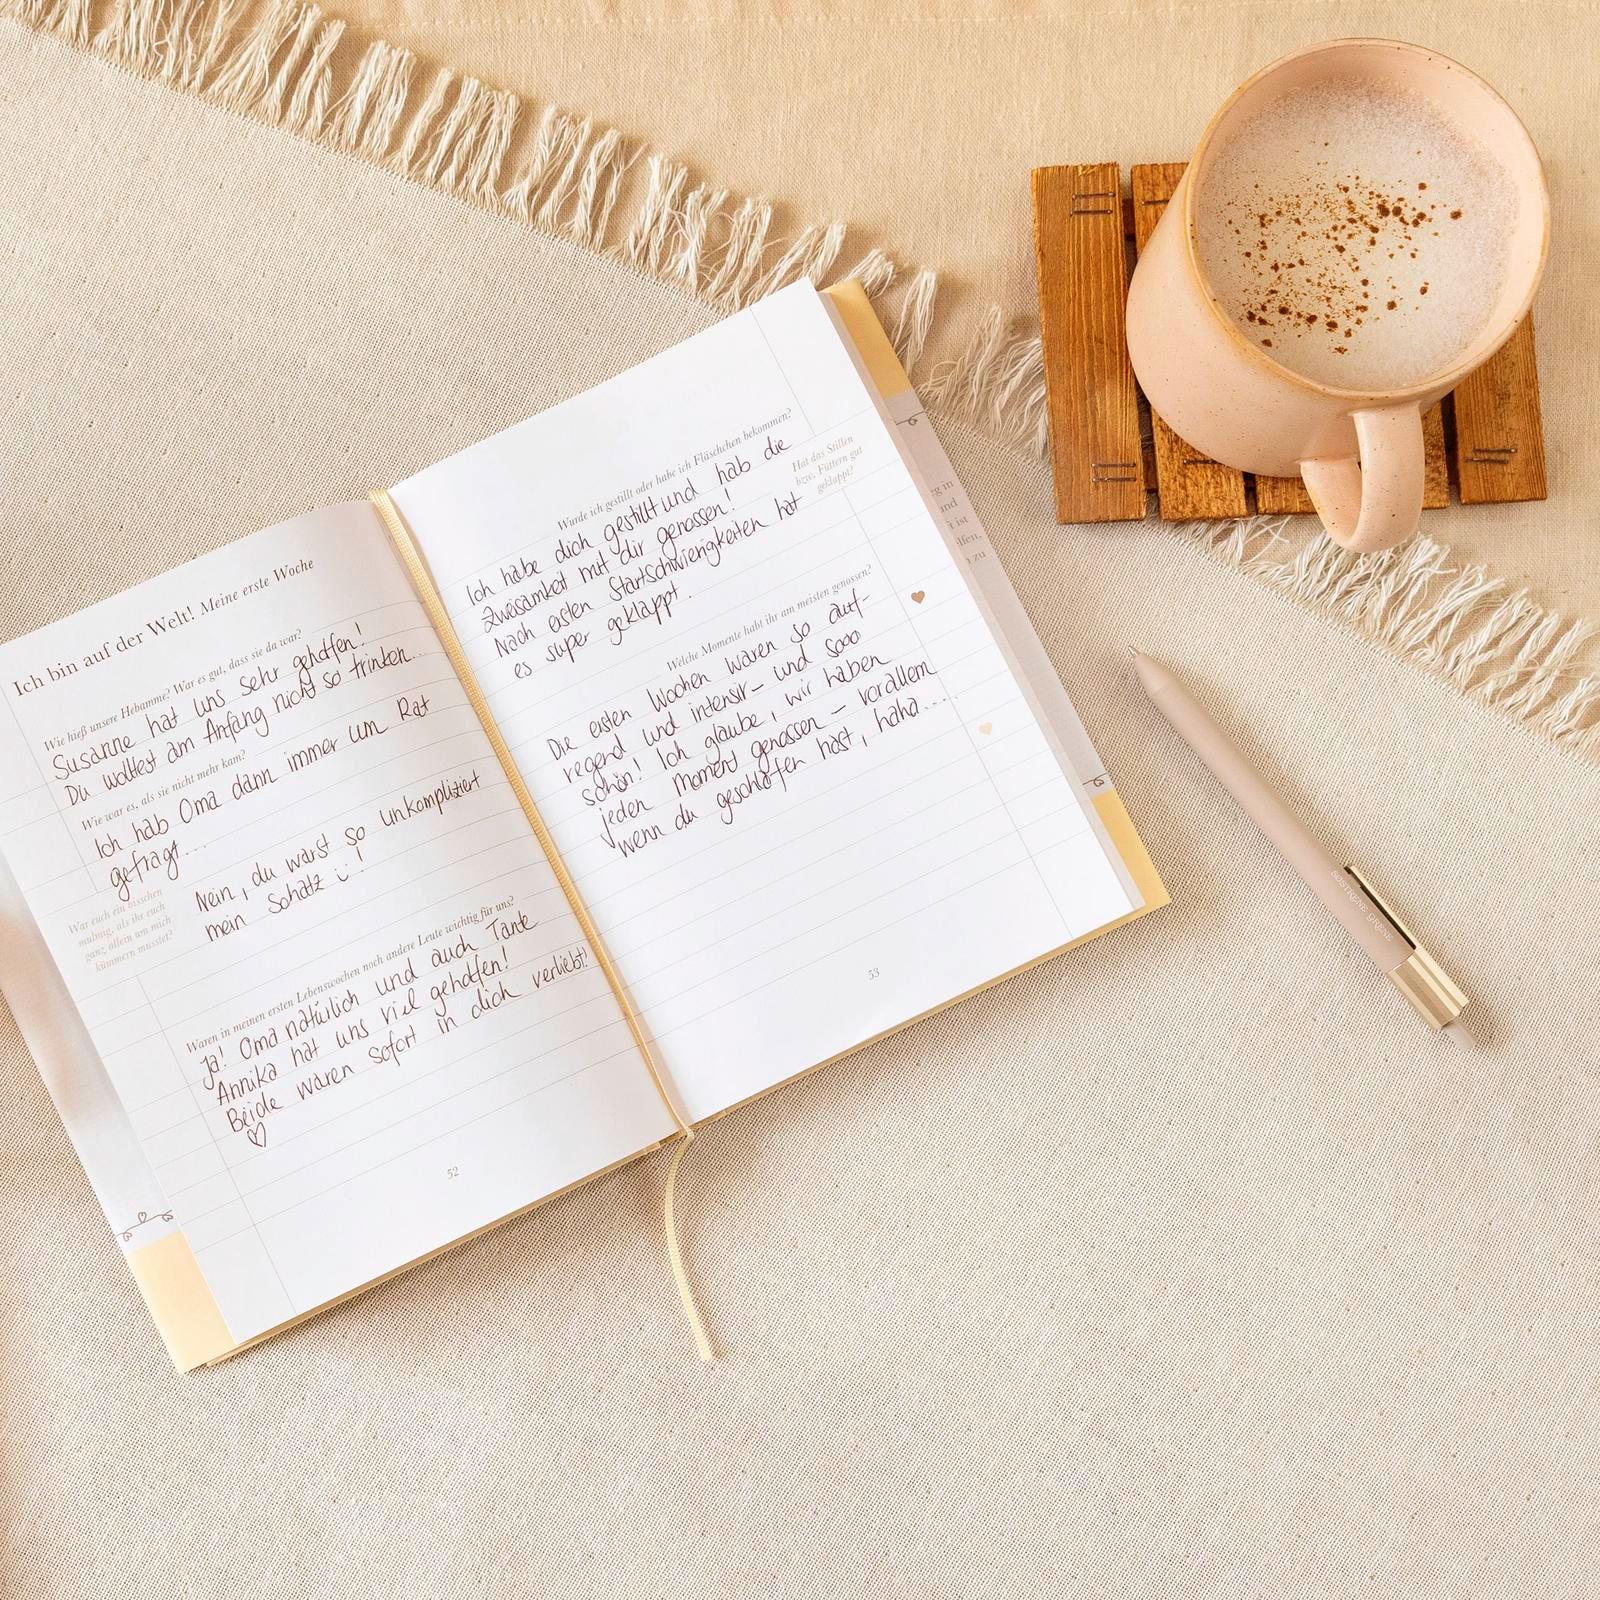 Ich bin auf der Welt! Meine erste Woche
Wie hieß unsere Hebamme? War es gut, dass sie da war?
Susanne hat uns sehr geholfen!
Du wolltest am Anfang nicht so trinken...
Wie war es, als sie nicht mehr kam?
Ich hab Oma dann immer um Rat
gefragt...
War euch ein bisschen
mulmig, als ihr euch
ganz allein um mich
kümmern musstet?
Nein, du warst so unkompliziert
mein Schatz !
Waren in meinen ersten Lebenswochen noch andere Leute wichtig für uns?
Ja! Oma natürlich und auch Tante
Annika hat uns viel geholfen!
Beide waren sofort in dich verliebt!
♡
52
Wurde ich gestillt oder habe ich Fläschchen bekommen?
Ich habe dich gestillt und hab die
Zweisamkeit mit dir genossen!
Hat das Stillen
bzw. Füttern gut
geklappt?
Nach ersten Startschwierigkeiten hat
es super geklappt.
Welche Momente habt ihr am meisten genossen?
Die ersten Wochen waren so auf-
regend und intensiv – und sooo
schön! Ich glaube, wir haben
jeden Moment genossen – vorallem
wenn du geschlafen hast, haha...
53
und
t ist
lfen,
zu